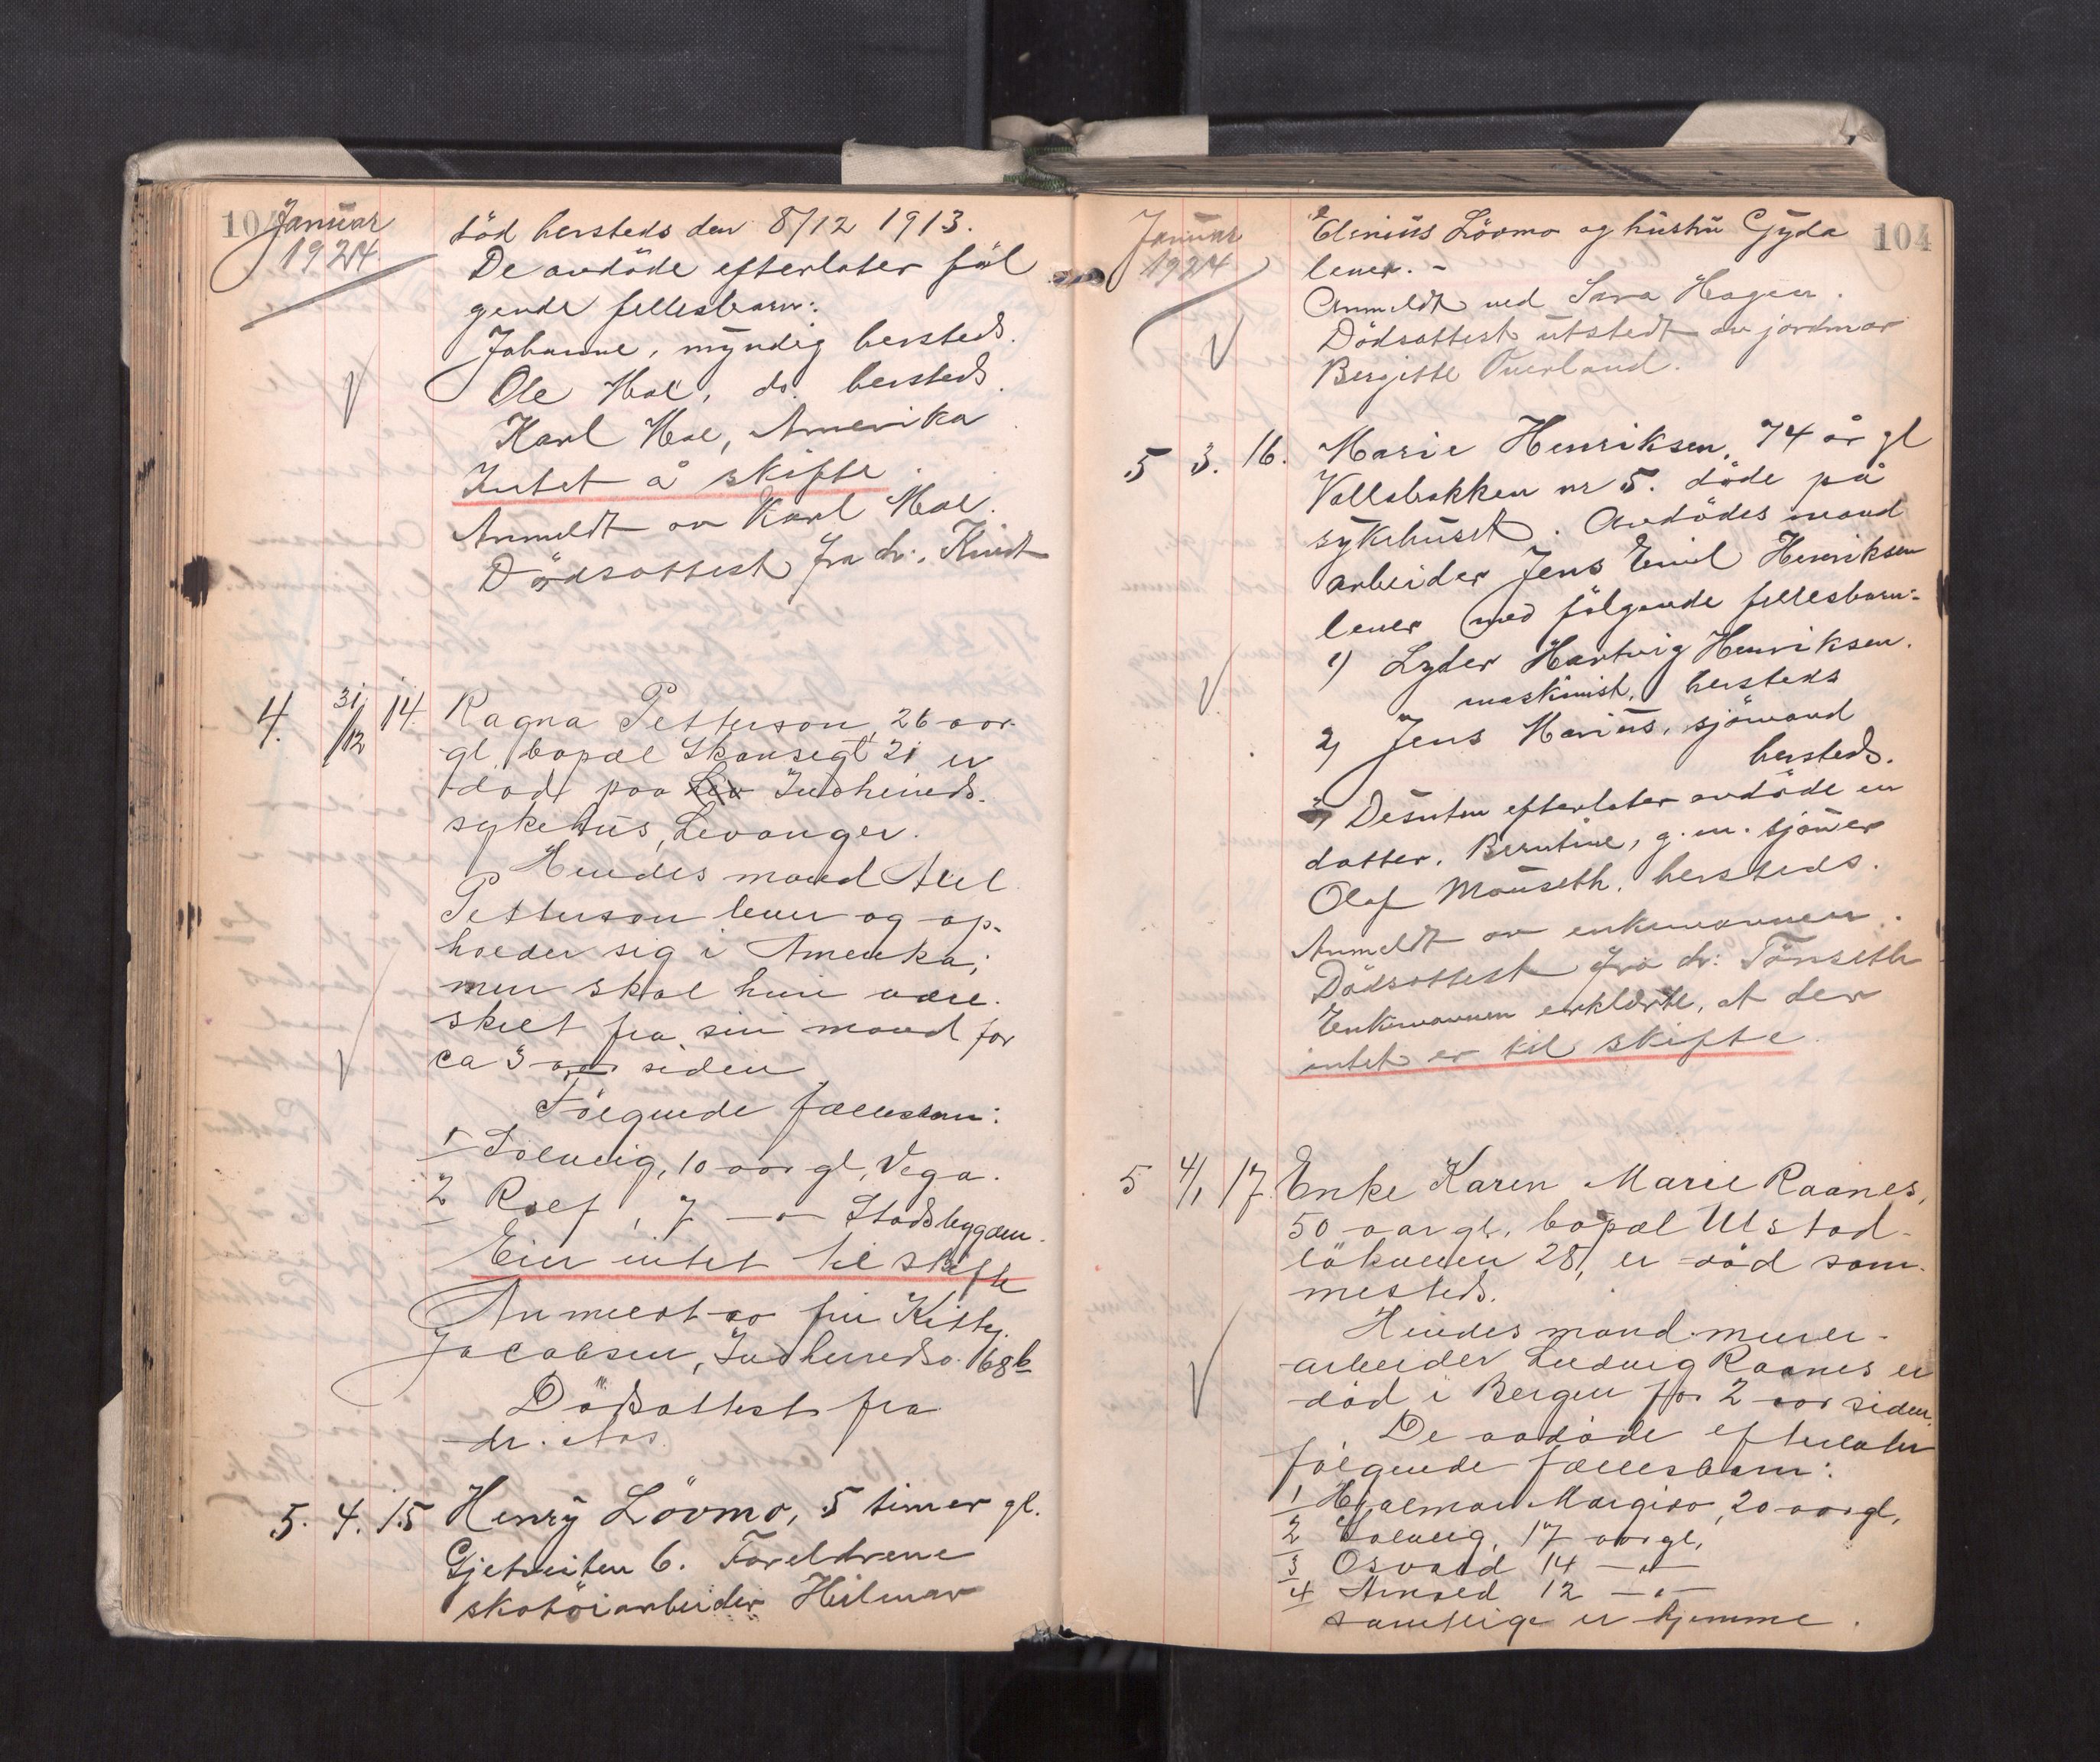 104
Januar
1924
död hersteds den 8/12 1913.
De avdöde efterlater föl
gende fellesbarn:
Johanne, myndig hersteds.
Ole Hal, do. hersteds.
Karl Hal, Amerika
Intet å skifte.
Anmeldt av Karl Hal.
Dödsattest fra dr.
4. 31/12 14. Ragna Petterson, 26 aar
gl. bopæl Skanseg 21 er
död paa Lev Indherreds
sykehus, Levanger.
Hendes mand
Petterson lever og op-
holder sig i Amerika;
men skal hun være
skilt fra sin mand for
ca 3 aar siden
Fölgende fællesbarn:
1 Solveig, 10 aar gl, Vega.
2 Rolf, 7 —"— Stadsbygden.
Eier intet til skifte
Anmeldt av fru Kitty
Jacobsen, Indherredsv. 68 b
Dödsattest fra
dr. Aas.
5. 4. 15 Henry Lövmo, 5 timer gl.
Gjetveiten 6. Foreldrene
skotöiarbeider Hilmar
Januar
1924
104
Elenius Lövmo og hustru Gyda
lever. -
Anmeldt ved Sara Hagen.
Dödsattest utstedt av jordmor
Bergitte Overland.
5 3. 16. Marie Henriksen, 74 år gl
Vollabakken nr 5. döde på
sykehuset. Avdödes mand
arbeider Jens Emil Henriksen
lever med fölgende fellesbarn:
1) Lyder Hartvig Henriksen.
maskinist, hersteds
2) Jens Marius, sjömand
hersteds.
Desuten efterlater avdöde en
datter. Berntine, g. m. sjauer
Olaf Mauseth. hersteds.
Anmeldt av enkemannen.
Dödsattest fra dr: Tönseth
Enkemannen erklærte, at der
intet er til skifte.
5 4/1 17. Enke Karin Marie Raanes,
50 aar gl. bopæl Ulstad-
lökveien 28, er död sam-
mesteds.
Hendes mand murer-
arbeider Ludvig Raanes er
död i Bergen for 2 aar siden.
De avdöde efterlater
fölgende fællesbarn:
1 Hjalmar Margido, 20 aar gl,
2 Solveig, 17 aar gl,
3 Osvald 14 —"—
4 Arnold 12 —"—
samtlige er hjemme.